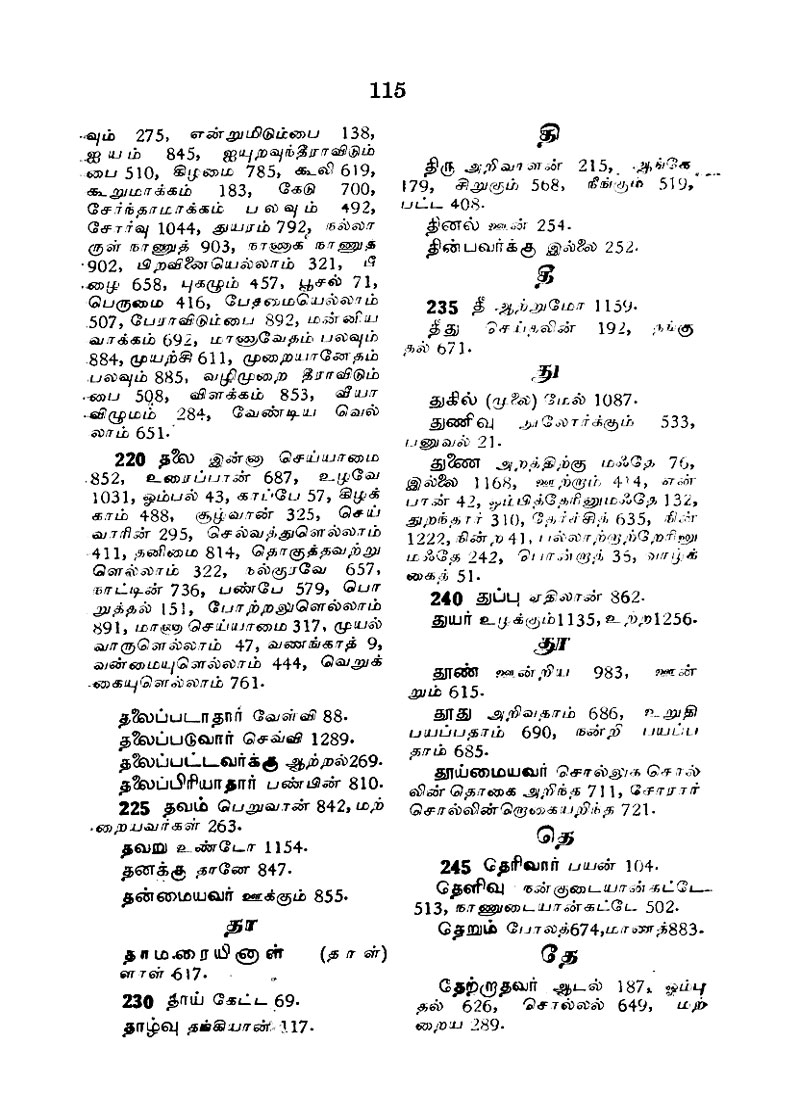 115
வும் 275, என்றுமிடும்பை 138,
ஐயம் 845, ஐயுறவுந்தீராவிடும்
பை 510, கிழமை 785, கூலி 619,
கூறுமாக்கம் 183, கேடு 700,
சேர்ந்தாமாக்கம் பலவும் 492,
சோர்வு 1044, துயரம் 792, நல்லா
ருள் நாணுத் 903, நாணாக நாணுத்
902, பிறவினையெல்லாம் 321, பீ
ழை 658, புகழும் 457, பூசல் 71,
பெருமை 416, பேதமையெல்லாம்
507, பேராவிடும்பை 892, மன்னிய
வாக்கம் 692, மாணாவேதம் பலவும்
884, முயற்சி 611, முறையானேதம்
பலவும் 885, வழிமுறை தீராவிடும்
பை 508, விளக்கம் 853, வீயா
விழுமம் 284, வேண்டிய வெல்
லாம் 651.
220 தலை இன்னா செய்யாமை
852, உரைப்பான் 687, உழவே
1031, ஓம்பல் 43, காப்பே 57, கிழக்
காம் 488, சூழ்வான் 325, செய்
வாரின் 295, செல்வத்துளெல்லாம்
411, தனிமை 814, தொகுத்தவற்று
ளெல்லாம் 322, நல்குரவே 657,
நாட்டின் 736, பண்பே 579, பொ
றுத்தல் 151, போற்றலுளெல்லாம்
891, மாணா செய்யாமை 317, முயல்
வாருளெல்லாம் 47, வணங்காத் 9,
வன்மையுளெல்லாம் 444, வெறுக்
கையுளெல்லாம் 761.
தலைப்படாதார் வேள்வி 88.
தலைப்படுவார் செவ்வி 1289.
தலைப்பட்டவர்க்கு ஆற்றல்269.
தலைப்பிரியாதார் பண்பின் 810.
225 தவம் பெறுவான் 842, மற்
றையவர்கள் 263.
தவறு உண்டோ 1154.
தனக்கு தானே 847.
தன்மையவர் ஊக்கும் 855.
தா
தாமரையினாள் (தாள்)
ளாள் 617.
230 தாய் கேட்ட 69.
தாழ்வு தங்கியான் 117.
தி
திரு அறிவாளன் 215, ஆங்கே
179, சிறுகும் 568, நீங்கும் 519,
பட்ட 408.
தினல் ஊன் 254.
தின்பவர்க்கு இல்லை 252.
தீ
235 தீ ஆற்றுமோ 1159.
தீது செய்தலின் 192, நங்கு
தல் 671.
து
துகில் (முலை) மேல் 1087.
துணிவு நூலோர்க்கும் 533,
பனுவல் 21.
துணை அறத்திற்கு மஃதே 76,
இல்லை 1168, ஊற்றாம் 414, என்
பான் 42, ஓம்பித்தேரினுமஃதே 132,
துறந்தார் 310, தேர்ச்சித் 635, நின்
1222, நின்ற 41, பல்லாற்றாற்றேரினு
மஃதே 242, பொன்றாத் 36, வாழ்க்
கைத் 51.
240 துப்பு ஏதிலான் 862.
துயர் உழக்கும்1135, உற்ற1256.
தூ
தூண் ஊன்றிய 983, ஊன்
றும் 615.
தூது அறிவதாம் 686, உறுதி
பயப்பதாம் 690, நன்றி பயப்ப
தாம் 685.
தூய்மையவர் சொல்லுக சொல்
லின் தொகை அறிந்த 711, சோரார்
சொல்லின்றொகையறிந்த 721.
தெ
245 தெரிவார் பயன் 104.
தெளிவு நன்குடையான்கட்டே
513, நாணுடையான்கட்டே 502.
தெறும் போலத்674,மாணத்883.
தே
தேற்றாதவர் ஆடல் 187, ஓம்பு
தல் 626, சொல்லல் 649, மற்
றைய 289.